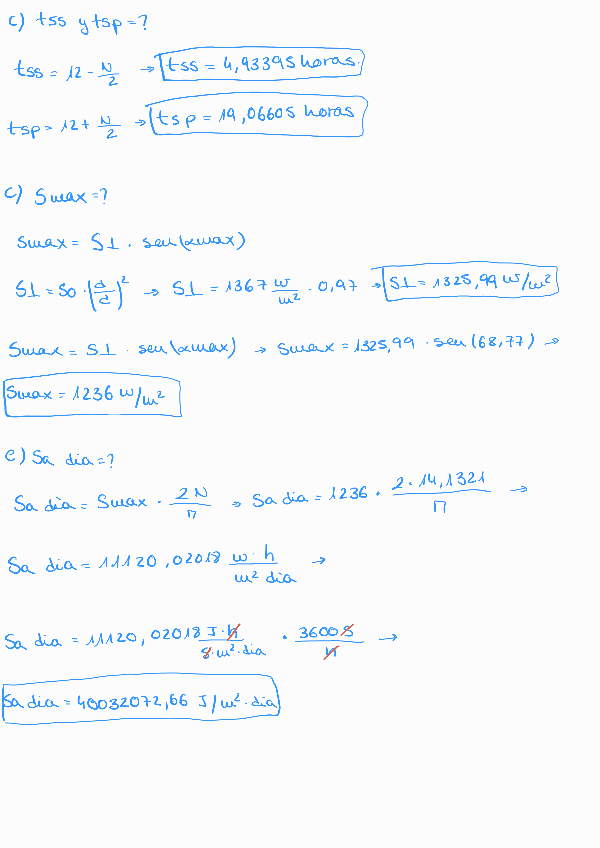 c) tss y tsp = ?
tss = 12 - N/2 → tss = 4,93395 horas.
tsp = 12 + N/2 → tsp = 19,06605 horas
c) Smax = ?
Smax = S⊥ . sen(αmax)
S⊥ = So · (d̄/d)² → S⊥ = 1367 W/m² · 0,97 → S⊥ = 1325,99 W/m²
Smax = S⊥ . sen(αmax) → Smax = 1325,99 · sen(68,77) →
Smax = 1236 W/m²
e) Sa dia = ?
Sa dia = Smax · 2N/π → Sa dia = 1236 · 2·14,1321/π →
Sa dia = 11120,02018 W·h/m² dia →
Sa dia = 11120,02018 J·h/s·m²·dia · 3600s/h →
Sa dia = 40032072,66 J/m²·dia